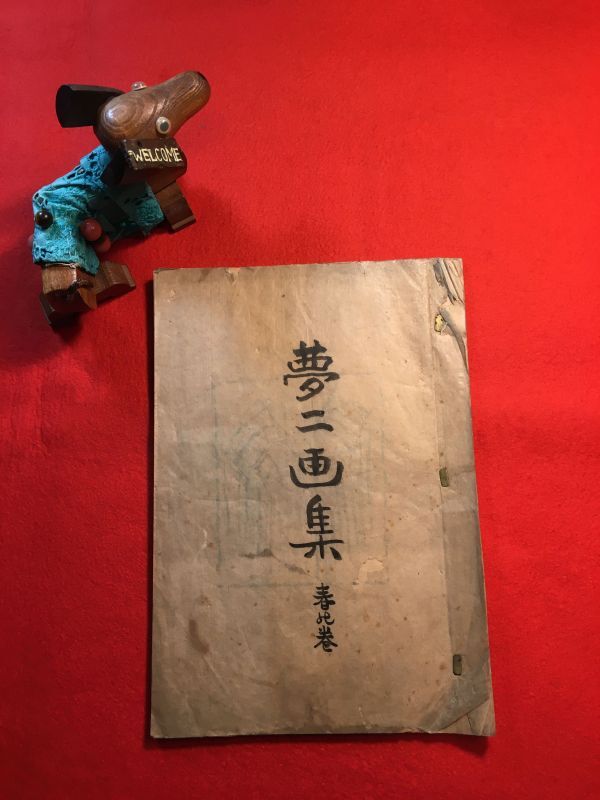 WELCOME
夢二画集
春の巻